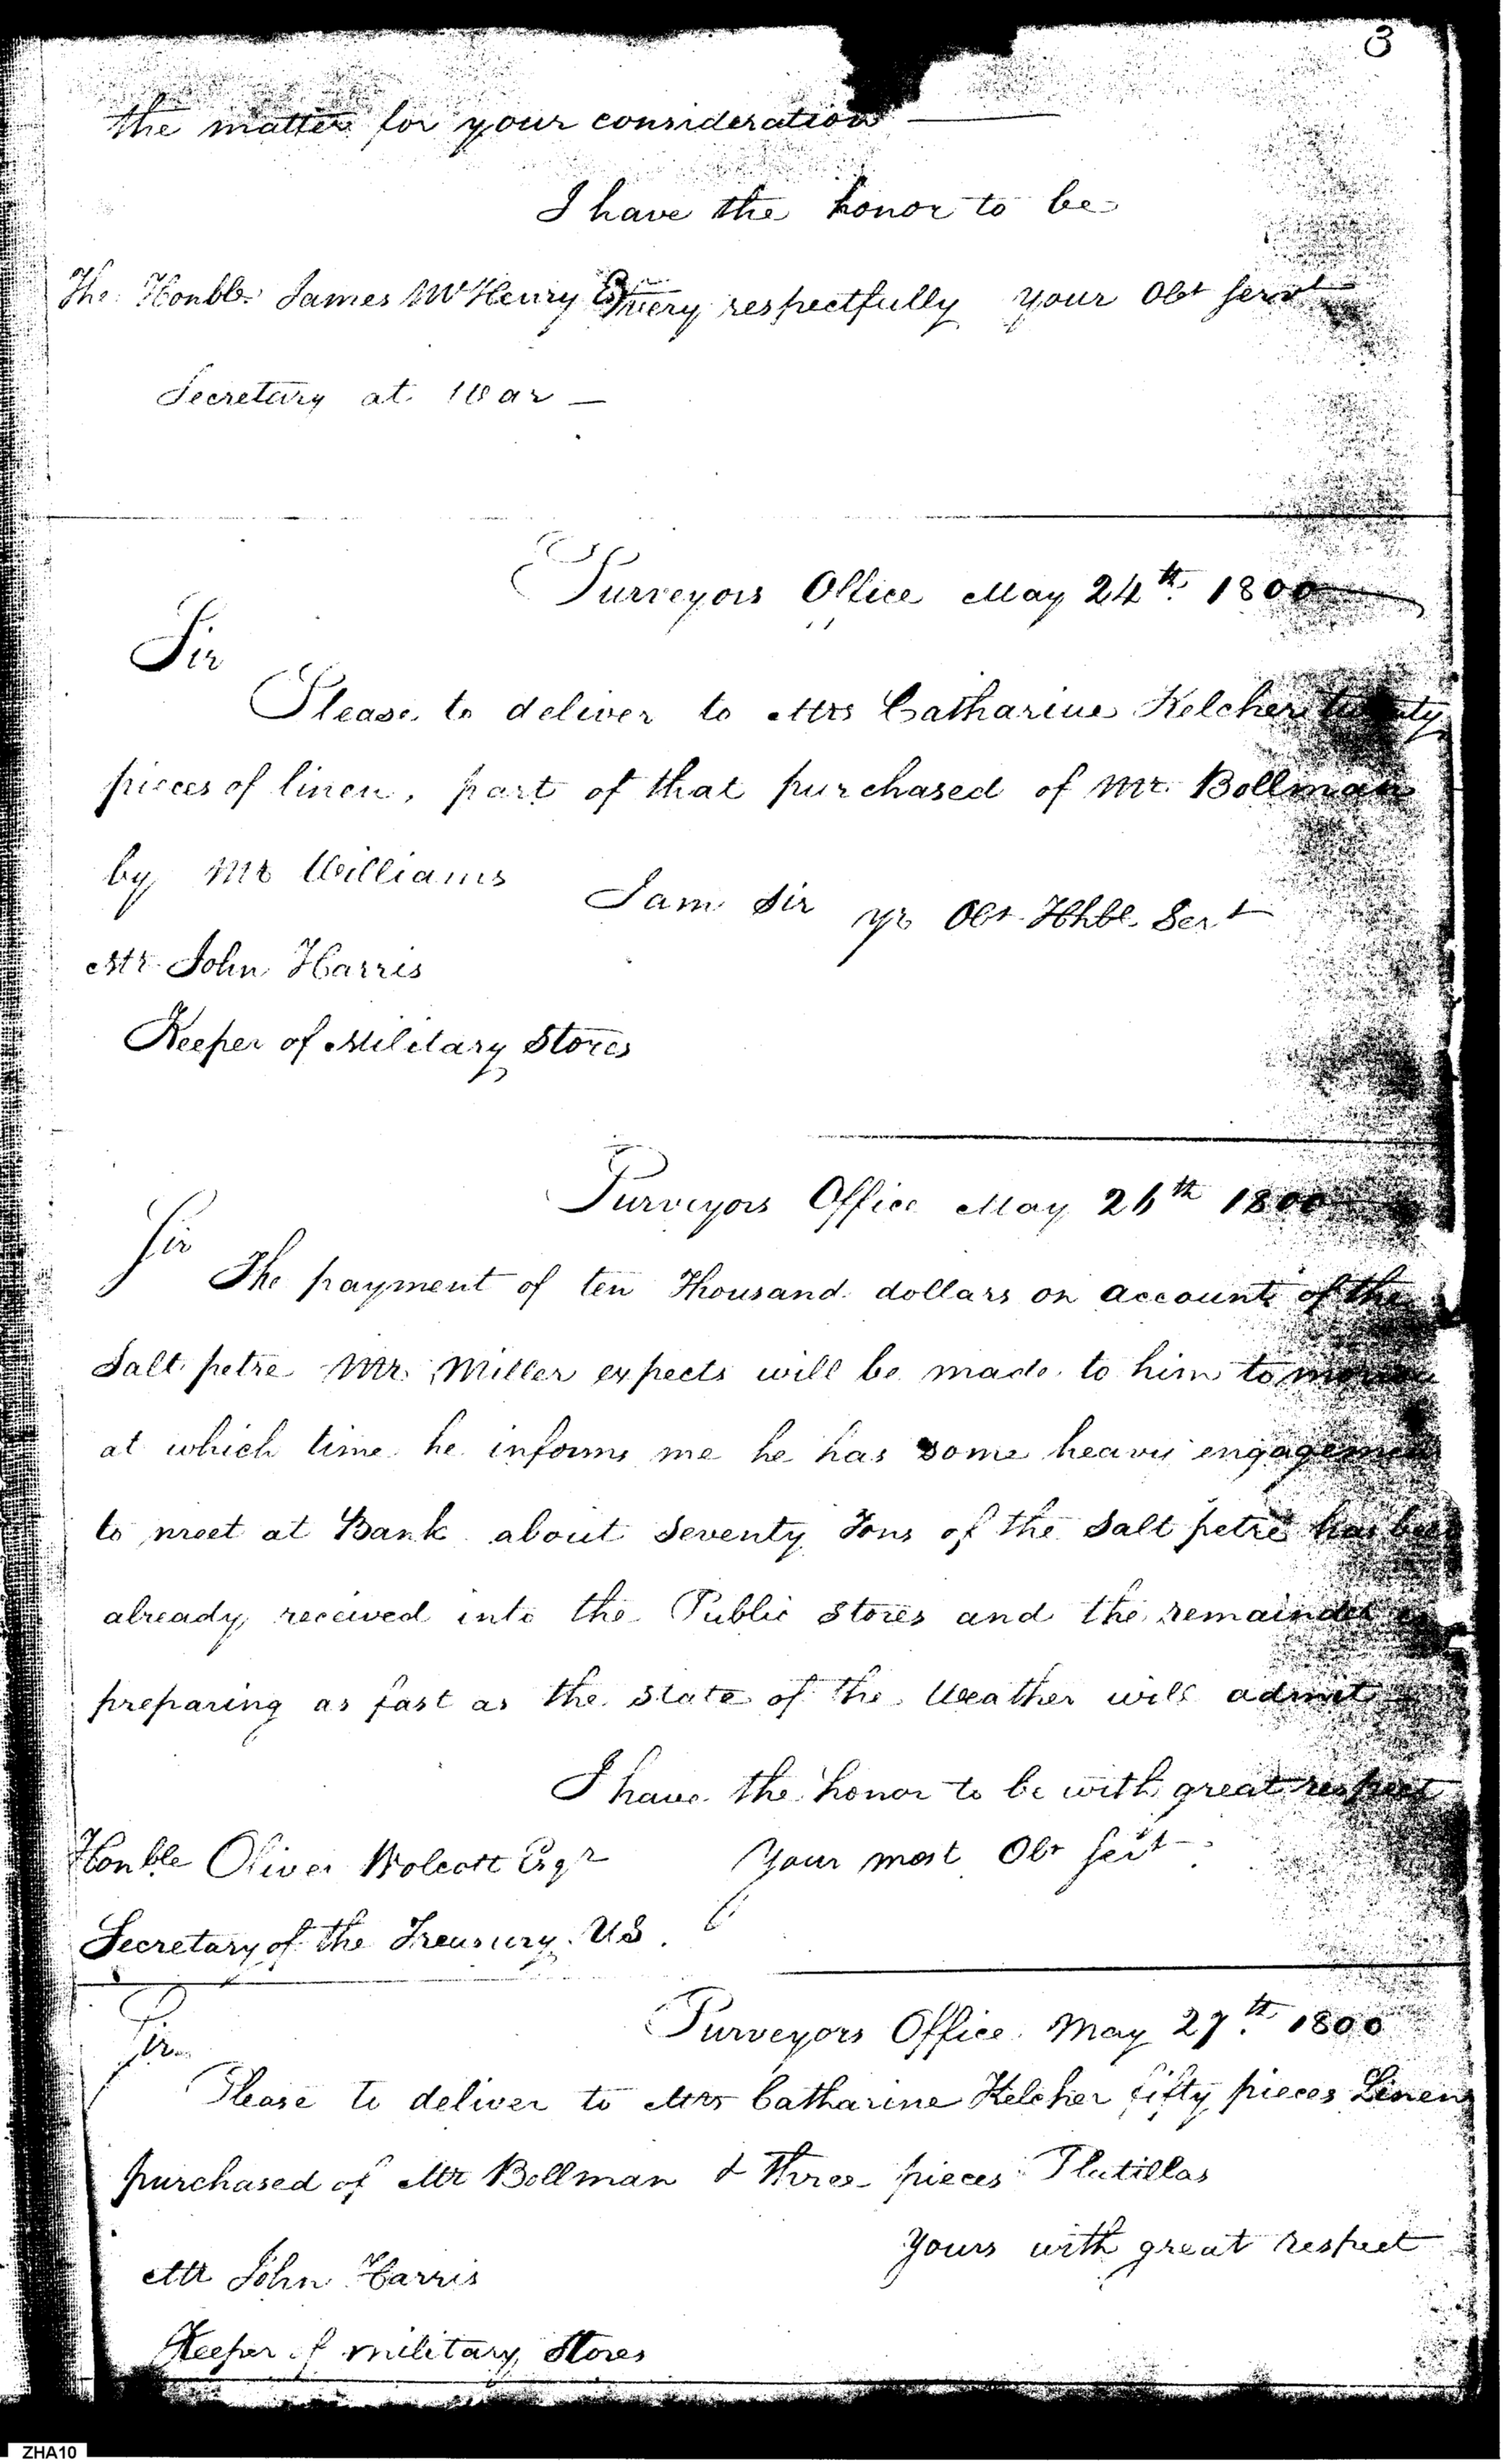 3
the matter for your consideration
I have the honor to be
The Honble James McHenry Esqr very respectfully your Obt servt
Secretary at War —
Purveyors Office May 24th 1800
Sir
Please to deliver to Mrs Catharine Kelcher twenty
pieces of linen, part of that purchased of Mr. Bollman
by Mr Williams
I am Sir yr Obt Hhble Sert
Mr John Harris
Keeper of Military Stores
Purveyors Office May 26th 1800
Sir
The payment of ten Thousand dollars on account of the
Salt petre Mr. Miller expects will be made to him to morrow
at which time he informs me he has some heavy engagements
to meet at Bank about Seventy Tons of the Salt petre has been
already received into the Public Stores and the remainder is
preparing as fast as the state of the Weather will admit
I have the honor to be with great respect
Honble Oliver Wolcott Esqr your most Obt Sert
Secretary of the Treasury US.
Purveyors Office May 27th 1800
Sir
Please to deliver to Mrs Catharine Kelcher fifty pieces Linens
purchased of Mr Bollman & three pieces Platillas
Yours with great respect
Mr John Harris
Keeper of military Stores
ZHA10